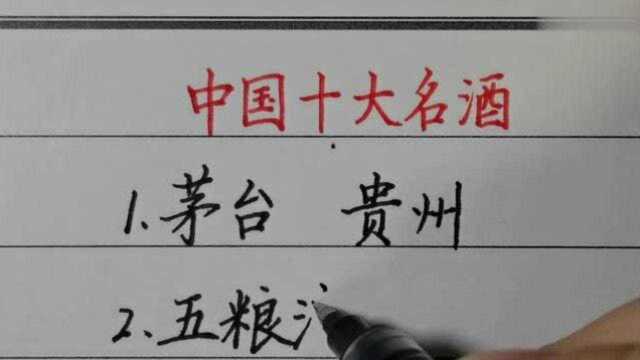 中国十大名酒
1.茅台 贵州
2.五粮